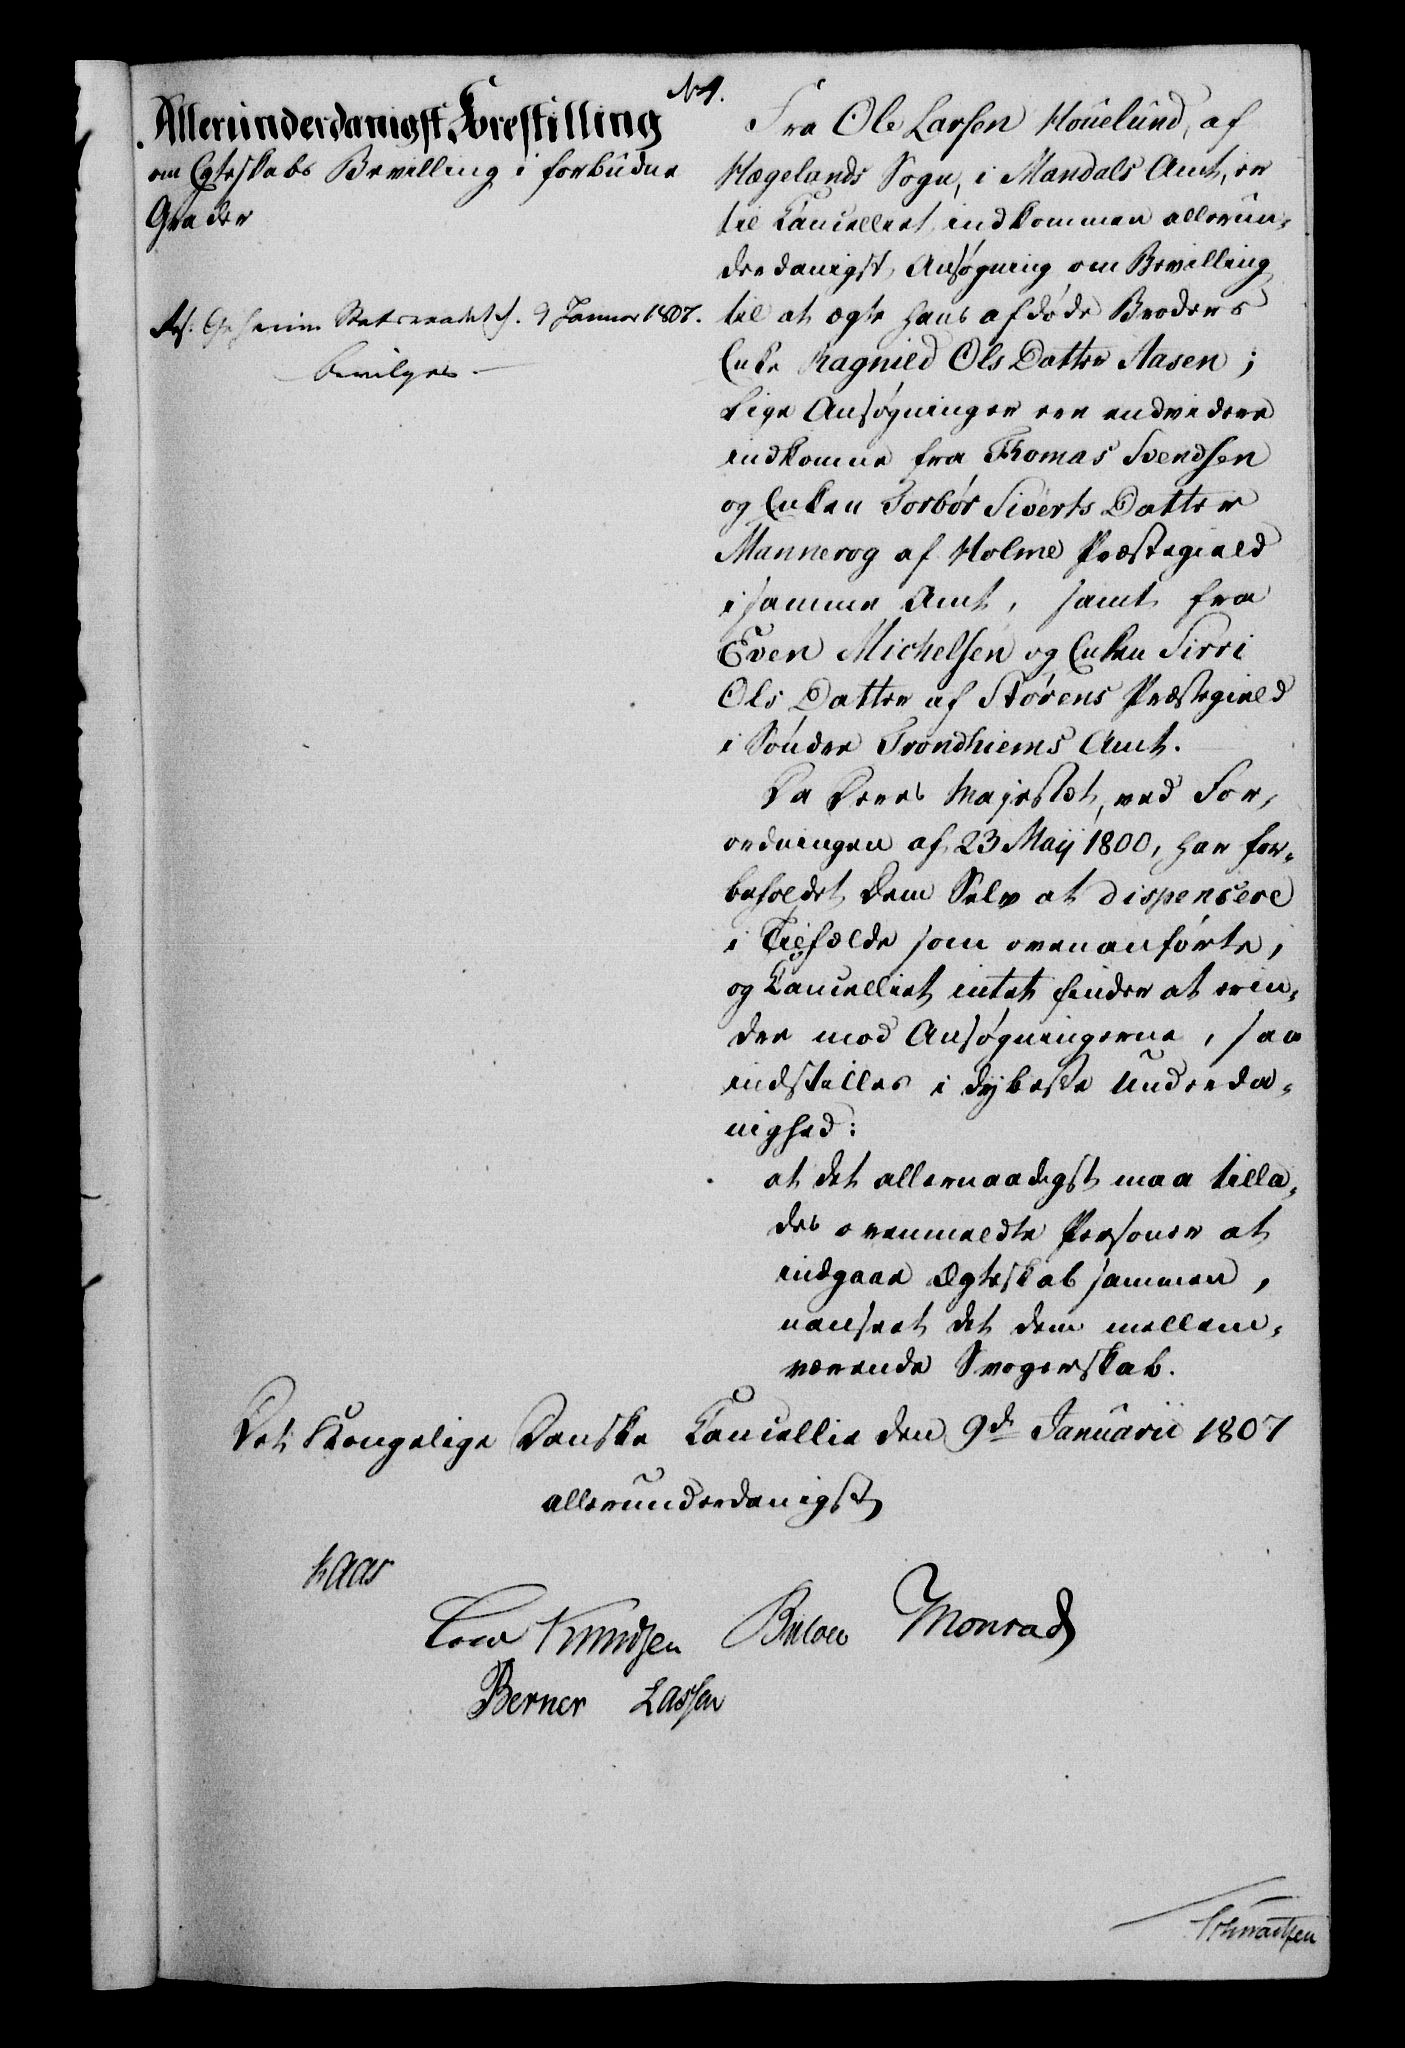 No 1.
Allerunderdanigst Forestilling
om Egteskabs Bevilling i forbudne
Grader
Res: Geheime Statsraadet d. 9 Januar 1807.
bevilges
Fra Ole Larsen Houelund, af
Hægelands Sogn, i Mandals Amt, er
til Cancelliet indkommen allerun-
derdanigst Ansøgning om Bevilling
til at ægte hans afdøde Broders
Enke Ragnild Ols Datter Aasen;
Lige Ansøgninger ere endvidere
indkomne fra Thomas Svendsen
og Enken Torbør Siverts Datter
Mannerog af Holme Præstegield
i samme Amt, samt fra
Even Michelsen og Enken Sirri
Ols Datter af Størens Præstegield
i Sønder Trondhiems Amt.
Da Deres Majestæt, ved For-
ordningen af 23 Maij 1800, har for-
beholdet Dem Selv at dispensere
i Tilfælde som ovenanførte,
og Cancelliet intet finder at erin-
dre mod Ansøgningerne, saa
indstilles i dybeste Underda-
nighed:
at det allernaadigst maa tilla-
des ovenmeldte Personer at
indgaae Ægteskab sammen,
uanseet det dem mellem-
værende Svogerskab.
Det Kongelige Danske Cancellie den 9de Januarii 1807
allerunderdanigst
Kaas
Cold Knudsen Bülow Monrad
Berner Lassen